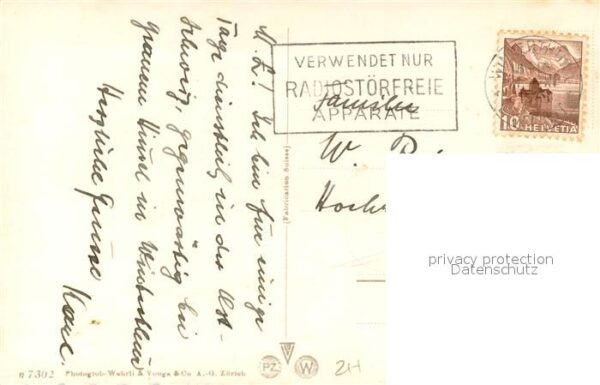 M. L.! Ich bin für einige
Tage dienstlich in der Ost-
schweiz, gegenwärtig bei
grauem Himmel in Winterthur
Herzliche Grüsse
Karl.
VERWENDET NUR
RADIOSTÖRFREIE
APPARATE
10 HELVETIA
Familie
W.
(Fabrication Suisse)
privacy protection
Datenschutz
n 7302 Photoglob-Wehrli & Vouga & Co A.-G. Zürich
PZ W 2H